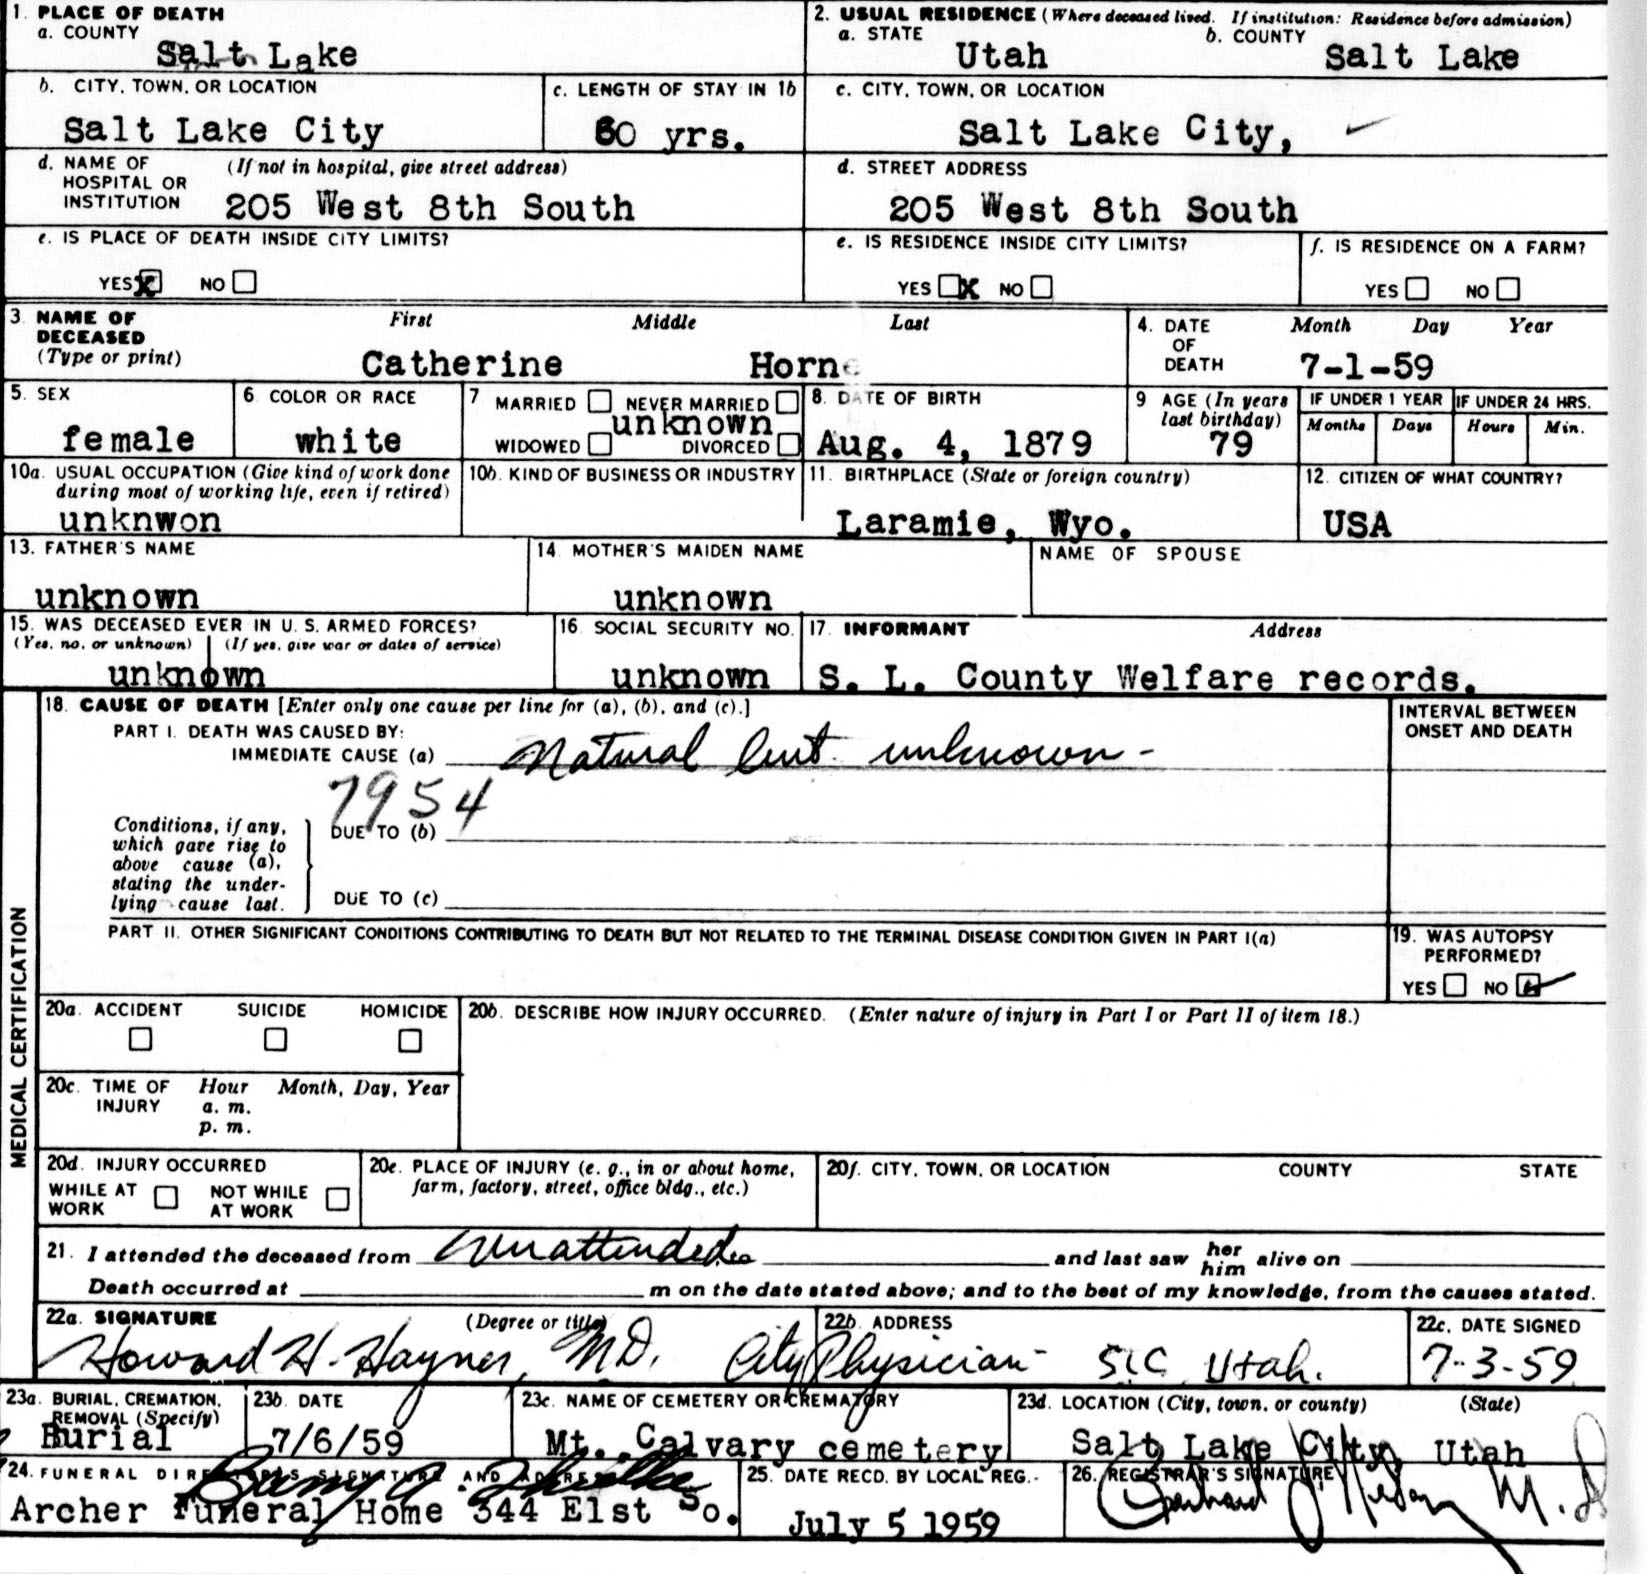 1. PLACE OF DEATH
a. COUNTY
Salt Lake
2. USUAL RESIDENCE (Where deceased lived. If institution: Residence before admission)
a. STATE b. COUNTY
Utah Salt Lake
b. CITY, TOWN, OR LOCATION
Salt Lake City
c. LENGTH OF STAY IN 1b
60 yrs.
c. CITY, TOWN, OR LOCATION
Salt Lake City,
d. NAME OF (If not in hospital, give street address)
HOSPITAL OR
INSTITUTION 205 West 8th South
d. STREET ADDRESS
205 West 8th South
e. IS PLACE OF DEATH INSIDE CITY LIMITS?
YES X NO
e. IS RESIDENCE INSIDE CITY LIMITS?
YES X NO
f. IS RESIDENCE ON A FARM?
YES NO
3. NAME OF First Middle Last
DECEASED
(Type or print) Catherine Horne
4. DATE Month Day Year
OF
DEATH 7-1-59
5. SEX
female
6. COLOR OR RACE
white
7 MARRIED NEVER MARRIED
unknown
WIDOWED DIVORCED
8. DATE OF BIRTH
Aug. 4, 1879
9 AGE (In years
last birthday)
79
IF UNDER 1 YEAR IF UNDER 24 HRS.
Months Days Hours Min.
10a. USUAL OCCUPATION (Give kind of work done
during most of working life, even if retired)
unknwon
10b. KIND OF BUSINESS OR INDUSTRY
11. BIRTHPLACE (State or foreign country)
Laramie, Wyo.
12. CITIZEN OF WHAT COUNTRY?
USA
13. FATHER'S NAME
unknown
14. MOTHER'S MAIDEN NAME
unknown
NAME OF SPOUSE
15. WAS DECEASED EVER IN U. S. ARMED FORCES?
(Yes, no, or unknown) (If yes, give war or dates of service)
unknown
16. SOCIAL SECURITY NO.
unknown
17. INFORMANT Address
S. L. County Welfare records.
MEDICAL CERTIFICATION
18. CAUSE OF DEATH [Enter only one cause per line for (a), (b), and (c).]
PART I. DEATH WAS CAUSED BY:
IMMEDIATE CAUSE (a) Natural but unknown -
7954
Conditions, if any,
which gave rise to
above cause (a),
stating the under-
lying cause last.
DUE TO (b)
DUE TO (c)
INTERVAL BETWEEN
ONSET AND DEATH
PART II. OTHER SIGNIFICANT CONDITIONS CONTRIBUTING TO DEATH BUT NOT RELATED TO THE TERMINAL DISEASE CONDITION GIVEN IN PART I(a)
19. WAS AUTOPSY
PERFORMED?
YES NO
20a. ACCIDENT SUICIDE HOMICIDE
20b. DESCRIBE HOW INJURY OCCURRED. (Enter nature of injury in Part I or Part II of item 18.)
20c. TIME OF Hour Month, Day, Year
INJURY a. m.
p. m.
20d. INJURY OCCURRED
WHILE AT NOT WHILE
WORK AT WORK
20e. PLACE OF INJURY (e. g., in or about home,
farm, factory, street, office bldg., etc.)
20f. CITY, TOWN, OR LOCATION COUNTY STATE
21. I attended the deceased from Unattended and last saw her him alive on
Death occurred at m on the date stated above; and to the best of my knowledge, from the causes stated.
22a. SIGNATURE (Degree or title)
Howard H. Hayner, M.D. City Physician
22b. ADDRESS
SLC Utah.
22c. DATE SIGNED
7-3-59
23a. BURIAL, CREMATION,
REMOVAL (Specify)
Burial
23b. DATE
7/6/59
23c. NAME OF CEMETERY OR CREMATORY
Mt. Calvary cemetery
23d. LOCATION (City, town, or county) (State)
Salt Lake City, Utah
24. FUNERAL DIRECTOR'S SIGNATURE AND ADDRESS
Archer Funeral Home 344 E1st So.
25. DATE RECD. BY LOCAL REG.
July 5 1959
26. REGISTRAR'S SIGNATURE
M.D